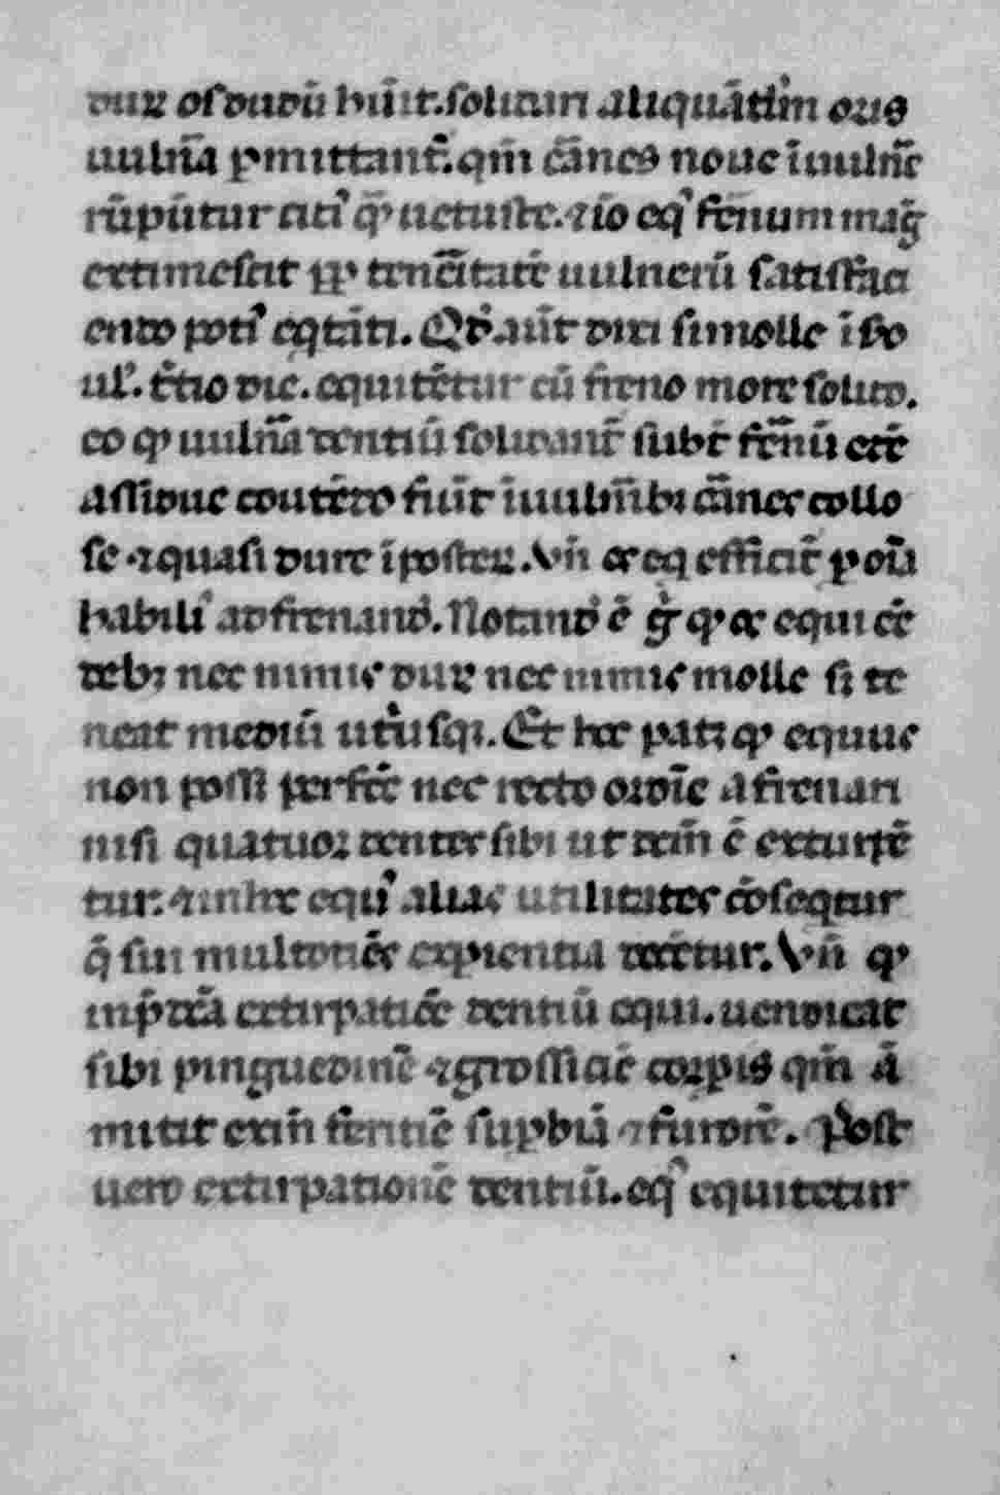 duꝝ os dudũ hũit. solidari aliquãtĩm oris
uulñа ꝑmittant̃. qm̃ cãnes noue ĩuulñe
rũpũtur citiꝰ ꝙ̃ uetuste. ⁊ iõ eqꝰ frẽnum mag̃
extimescit ꝓꝑ tencitatẽ uulnerũ satisfaci
endo potiꝰ eqtãti. Qd̾ aũt dixi si molle ĩ do
ul᷒. t̃tio die. equitẽtur cũ freno more solito.
eo ꝙ uulña dentiũ solidant̃ subt̃ frẽnũ etẽ
assidue coutẽdo fiũt ĩ uulñibꝫ cãnes collo
se ⁊ quasi dure ĩposteꝝ. Vñ os eq efficit̃ ꝑ oĩa
habiliꝰ ad frenand̾. Notand̾ ẽ g̾ ꝙ os equi eẽ
debꝫ nec nimis duꝝ nec nimis molle sꝫ te
neat mediũ utriusqꝫ. Et hoc patꝫ ꝙ equus
non possꝫ perfc̃e nec recto ordĩe afrenari
nisi quatuor dentes sibi ut dcm̃ ẽ extirpẽ
tur. ⁊ in hoc equꝰ alias utilitates cõseqtur
q̃ sui multotiẽs expientia docẽtur. Vñ ꝙ
inp̃dcã extirpatiõe dentiũ equi. uendicat
sibi pinguedinẽ ⁊ grossiciẽ corꝑis qm̃ ã
mittit exiñ feritiẽ suꝑbiã ⁊ furorẽ. Post
uero extirpationẽ dentiũ. eqꝰ equitetur